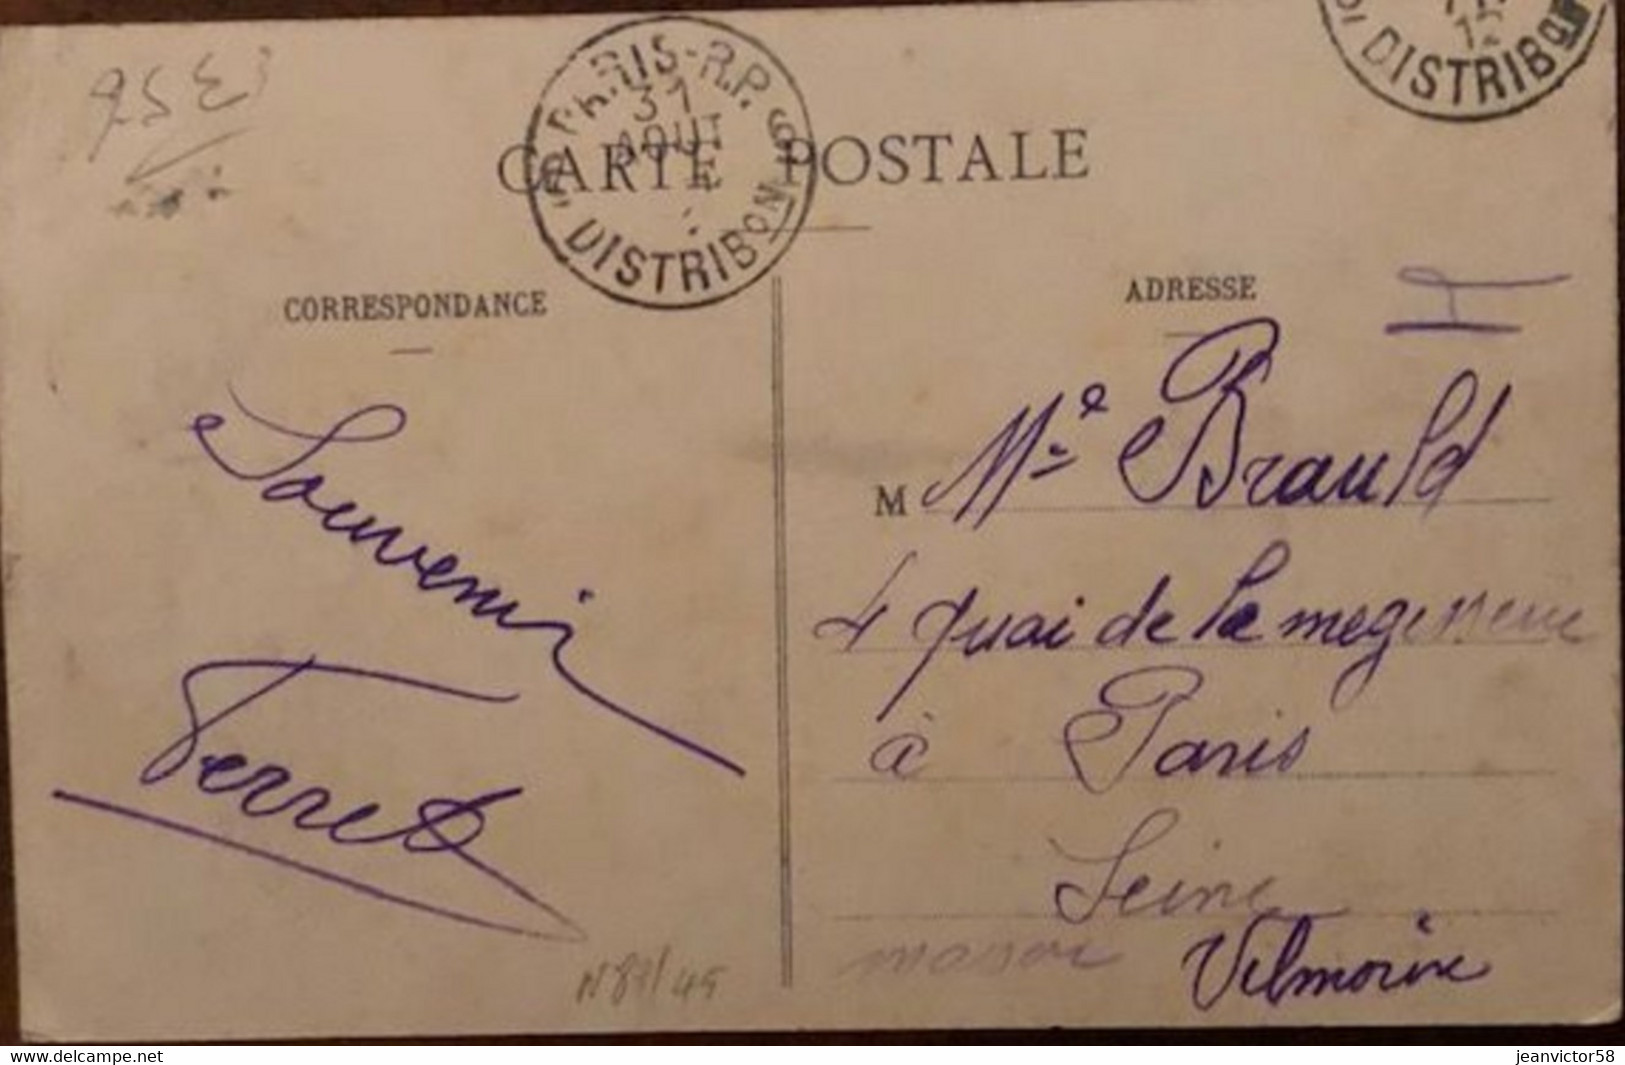 PARIS-R.P.
31
AOUT
DISTRIBON
DISTRIBON
CARTE POSTALE
CORRESPONDANCE
ADRESSE
Souvenir
Ferret
M Mr Brauld
4 quai de la megisserie
à Paris
Seine
maison Vilmorin
N 89/45
www.delcampe.net
jeanvictor58